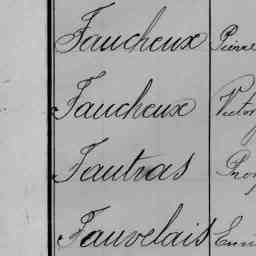 Faucheux Pierre
Faucheux Victor
Fautras
Fauvelais